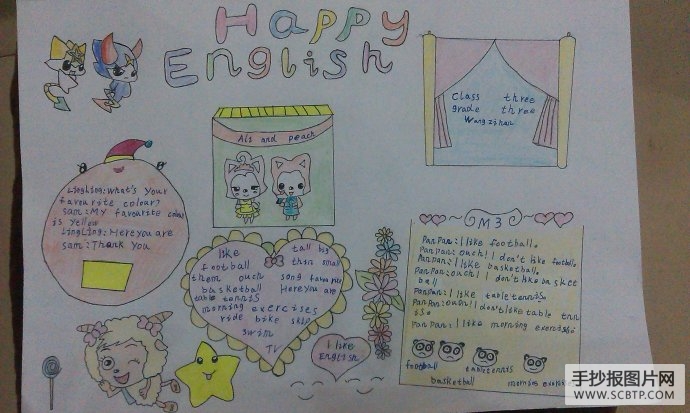 Happy
English
Class three
grade three
Wangzihan
Ali and peach
LingLing: What's your
favourite colour?
Sam: My favourite colour
is yellow
LingLing: Here you are
Sam: Thank you
like tall big
football thin small
them ouch song favourite
basketball Here you are
table tennis
morning exercises
ride bike skip
swim
TV
I like
English
M3
PanPan: I like football.
PanPan: ouch! I don't like football.
PanPan: I like basketball.
PanPan: ouch! I don't like basket
ball
PanPan: I like table tennis.
PanPan: ouch! I don't like table tnn
is.
PanPan: I like morning exercises
football
basketball
table tennis
morning exercises
手抄报图片网
WWW.SCBTP.COM